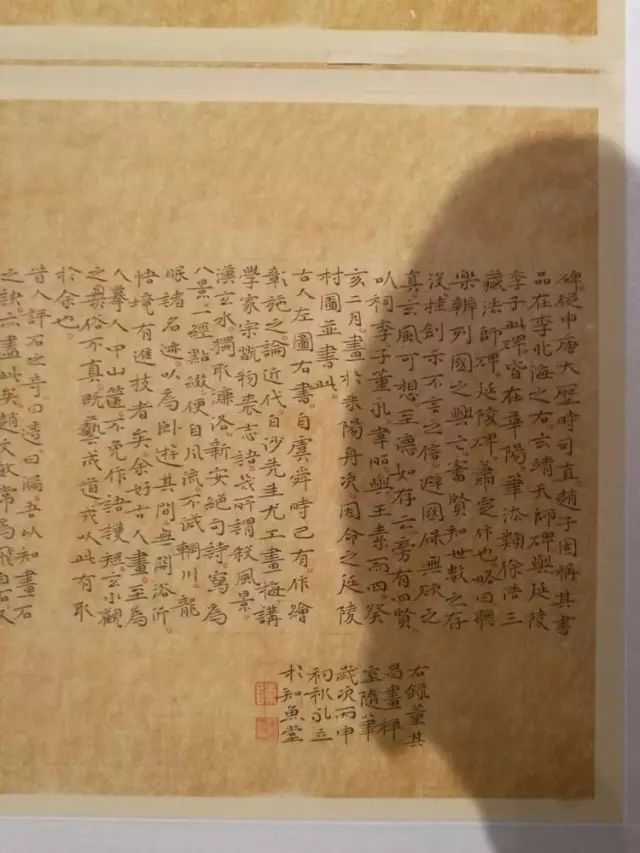 碑後申唐大歷時司直趙子固稱其書
品在李北海之右玄靖天師碑與延陵
季子此碑皆在平陽筆法類徐浩三
藏法師碑延陵碑蕭定作也略曰聘
樂辨列國之興亡審賢知世數之存
沒挂劍示不言之信避國保無欲之
真玄風可想至德如存云旁有四賢
以祠季子董永韋昭與王素而四癸
亥二月畫於耒陽舟次因命之延陵
村圖並書此
古人左圖右書自虞舜時已有作繪
彰施之論近代白沙先生尤工畫梅講
學家宗翫物喪志語幾所謂殺風景
漢玄水獨取濂洛新安絕句詩寫為
八景一經點綴便自風流不減輞川龍
眠諸名迹以為臥遊其間無關浴沂
悟境有進技者矣余好古人畫至為
人摹人中山篋不免作語謾短玄小觀
之異俗不真既藝成道或以此有取
於余也
昔人評石之奇曰透曰漏吾以知畫石
之訣亦盡此矣趙文敏常為飛白石又
右錄董其
昌畫禪
室隨筆
歲次丙申
初秋永立
於知魚堂